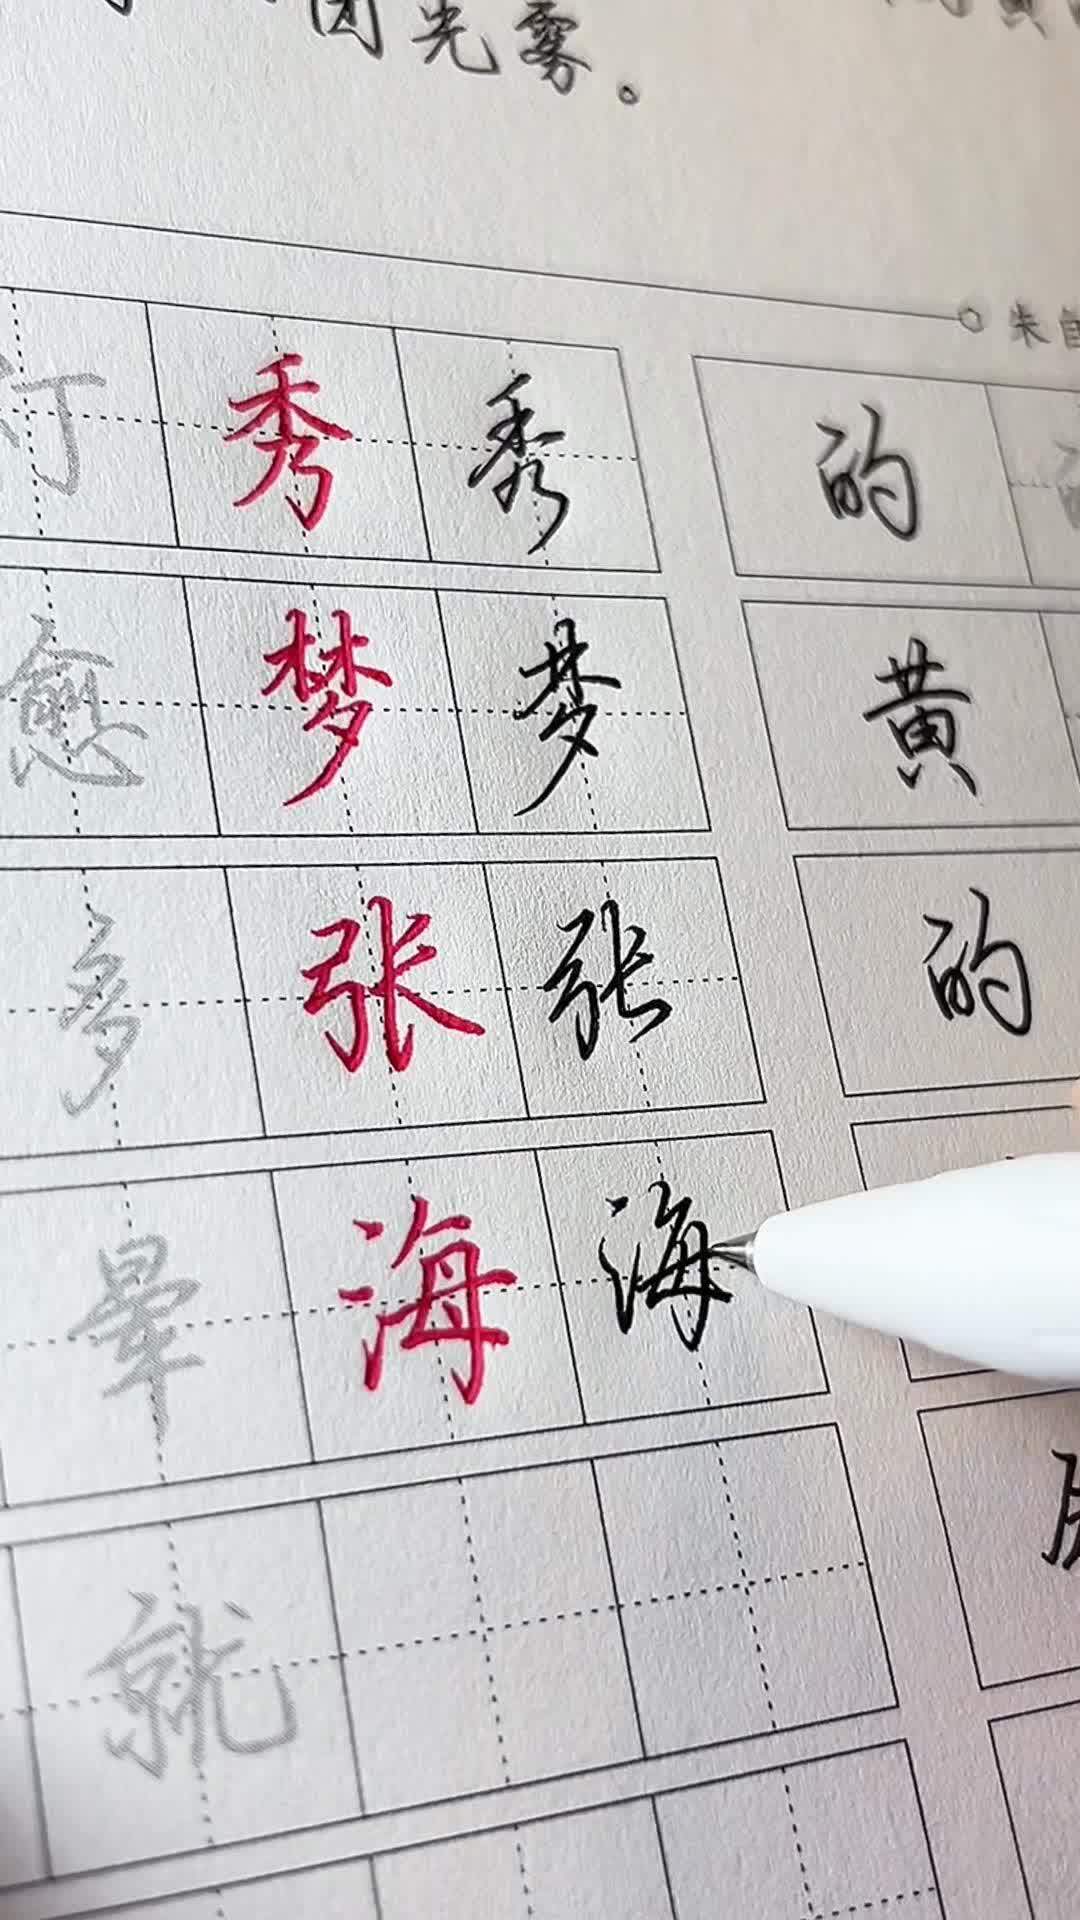 团光雾。
朱自
灯 秀 秀 的
愈 梦 梦 黄
多 张 张 的
晕 海 海
就